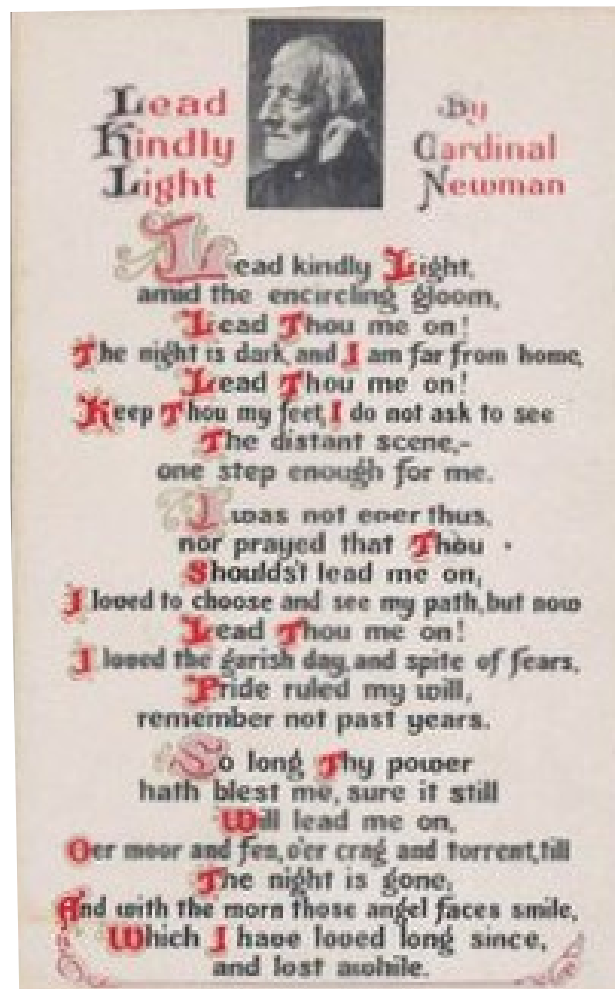 Lead
Kindly
Light
By
Cardinal
Newman
Lead kindly Light,
amid the encircling gloom,
Lead Thou me on!
The night is dark, and I am far from home,
Lead Thou me on!
Keep Thou my feet, I do not ask to see
The distant scene,-
one step enough for me.
I was not ever thus,
nor prayed that Thou
Should'st lead me on,
I loved to choose and see my path, but now
Lead Thou me on!
I loved the garish day, and spite of fears,
Pride ruled my will,
remember not past years.
So long Thy power
hath blest me, sure it still
Will lead me on,
Oer moor and fen, o'er crag and torrent, till
The night is gone,
And with the morn those angel faces smile,
Which I have loved long since,
and lost awhile.